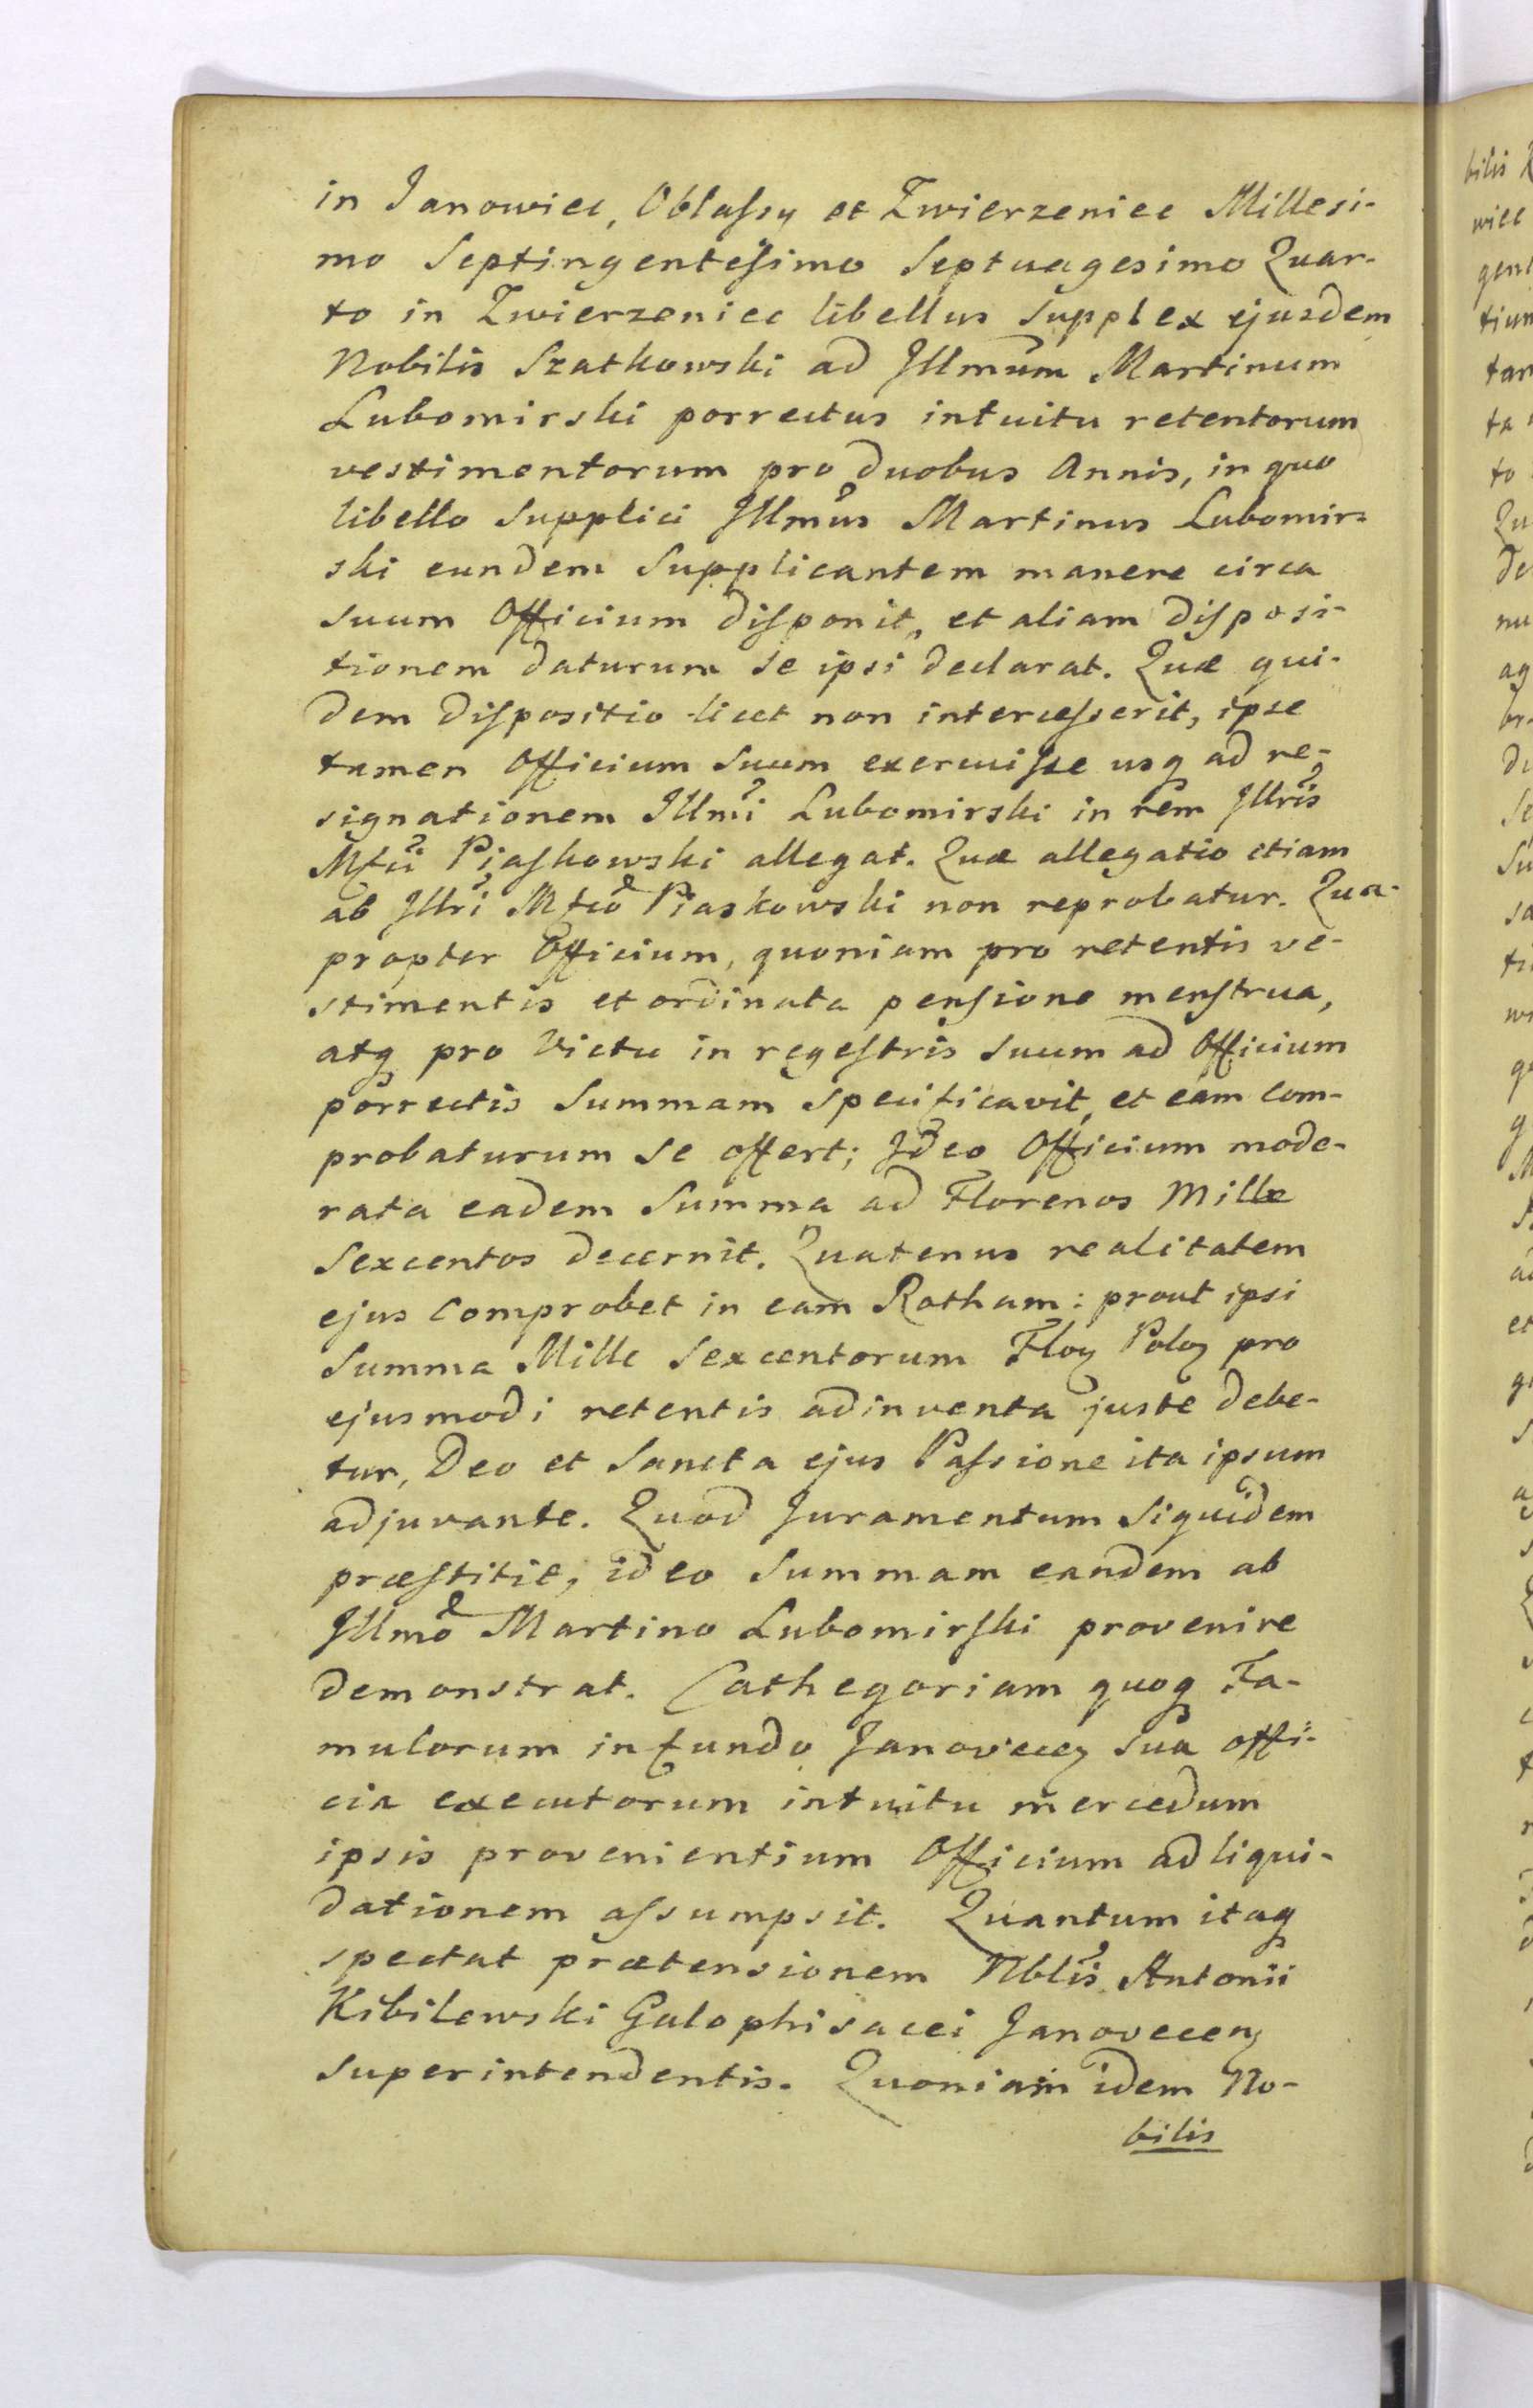 in Janowiec, Oblassy et Zwierzeniec Millesi-
mo Septingentesimo Septuagesimo Quar-
to in Zwierzeniec libellus supplex ejusdem
Nobilis Szatkowski ad Illmum Martinum
Lubomirski porrectus intuitu retentorum
vestimentorum pro duobus Annis, in quo
libello supplici Illmus Martinus Lubomir-
ski eundem Supplicantem manere circa
suum Officium disponit, et aliam disposi-
tionem daturum se ipsi declarat. Quæ qui-
dem dispositio licet non intercesserit, ipse
tamen Officium suum exercuisse usq ad re-
signationem Illmi Lubomirski in rem Illris
Mfci Piaskowski allegat. Quæ allegatio etiam
ab Illri Mfco Piaskowski non reprobatur. Qua-
propter Officium, quoniam pro retentis ve-
stimentis et ordinata pensione menstrua,
atq pro Victu in regestris suum ad Officium
porrectis Summam specificavit, et eam com-
probaturum se offert; Ideo Officium mode-
rata eadem Summa ad Florenos Mille
Sexcentos decernit. Quatenus realitatem
ejus comprobet in eam Rotham: prout ipsi
Summa Mille Sexcentorum Floz Poloz pro
ejusmodi retentis adinventa juste debe-
tur, Deo et Sancta ejus Passione ita ipsum
adjuvante. Quod Juramentum siquidem
præstitit, ideo Summam eandem ab
Illmo Martino Lubomirski provenire
demonstrat. Cathegoriam quoq Fa-
mulorum in fundo Janovecez sua offi-
cia executorum intuitu mercedum
ipsis provenientium Officium ad liqui-
dationem assumpsit. Quantum itaq
spectat prætensionem Nblis Antonii
Kibilewski Gulophisacei Janovecenz
Superintendentis. Quoniam idem No-
bilis